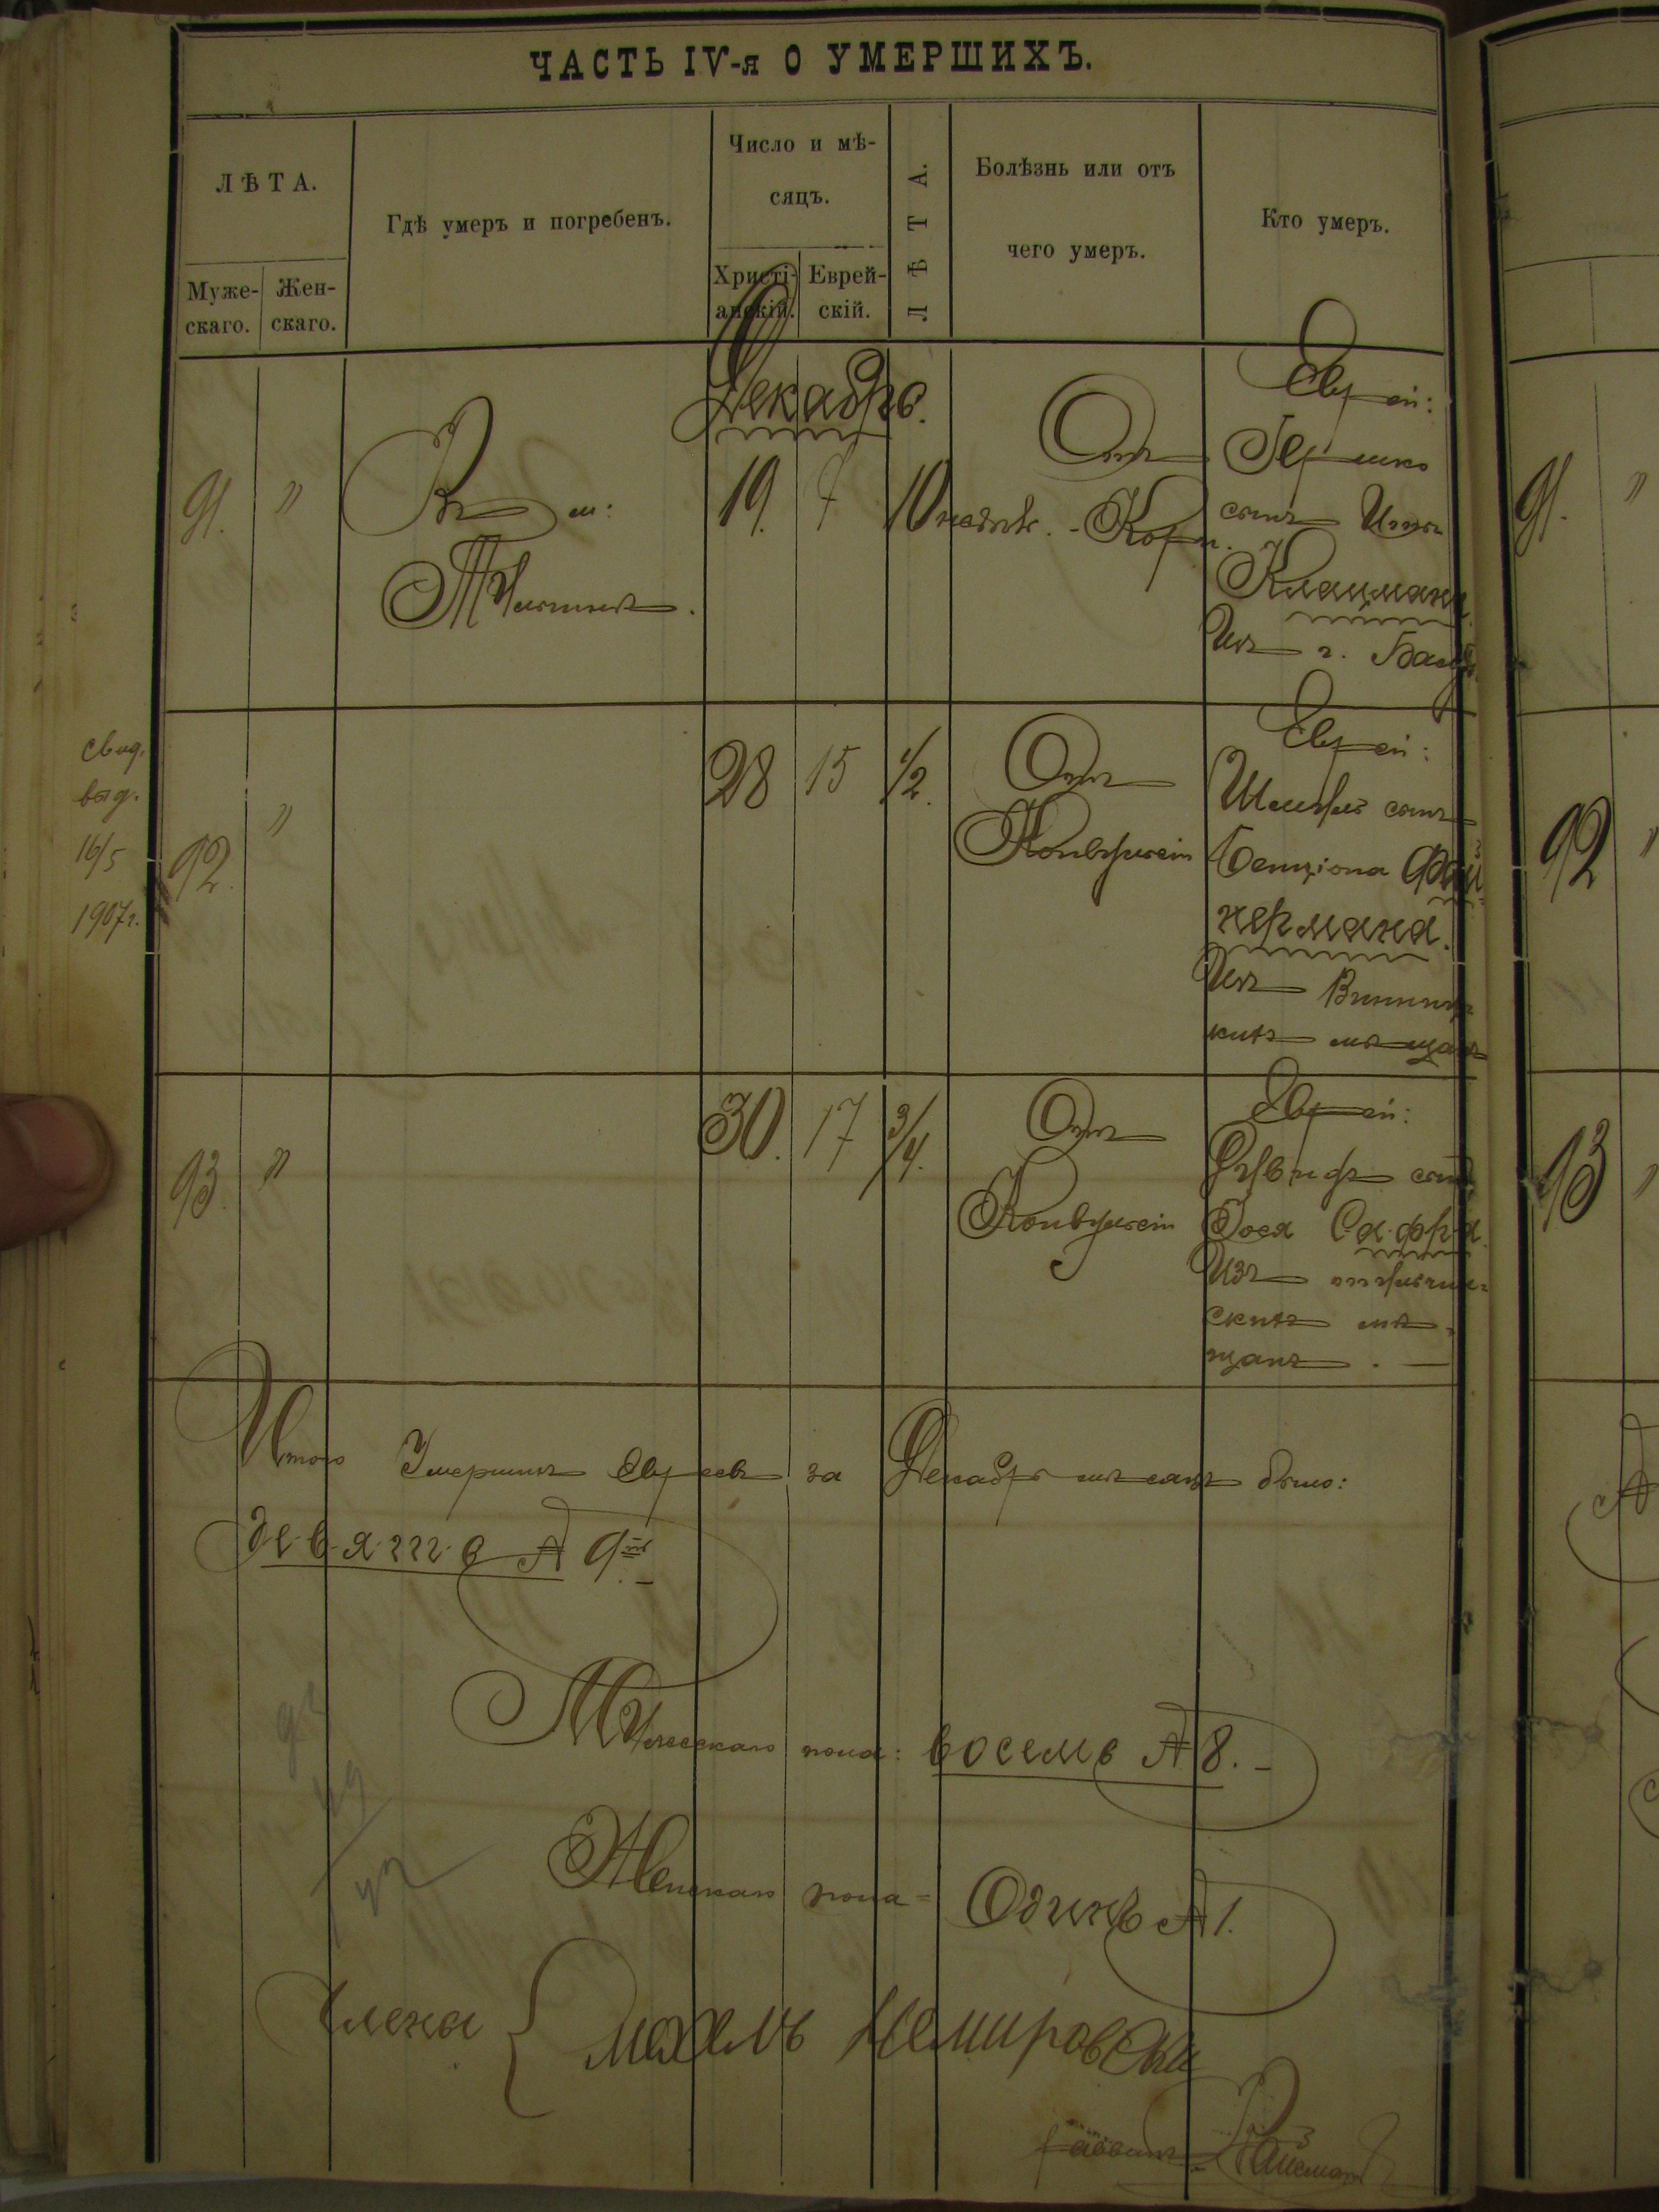 ЧАСТЬ IV-я О УМЕРШИХЪ.
ЛѢТА.
Муже-
скаго.
Жен-
скаго.
Гдѣ умеръ и погребенъ.
Число и мѣ-
сяцъ.
Христі-
анскій.
Еврей-
скій.
ЛѢТА.
Болѣзнь или отъ
чего умеръ.
Кто умеръ.
Декабрь.
91. " Въ м:
19. 7 10
Отъ
Кори.
Еврей:
Гершко
сынъ
Клаймана
Изъ г.
91. "
свид.
выд.
16/5
1907 г.
92. "
28 15 1/2.
Отъ
Конвульсіи
Еврей:
сынъ
Бенціона Фай
нермана.
Изъ Винниц
кихъ мѣщанъ
92 "
93. "
30. 17 3/4.
Отъ
Конвульсіи
Еврей:
сынъ
Іося Сафра.
Изъ
скихъ мѣ-
щанъ. —
93 "
Итого Умершихъ Евреевъ за Декабрь мѣсяцъ было:
девять № 9.–
Мужескаго пола: восемь № 8.–
Женскаго пола = Одинъ № 1.
Члены { Немировски
Раввинъ